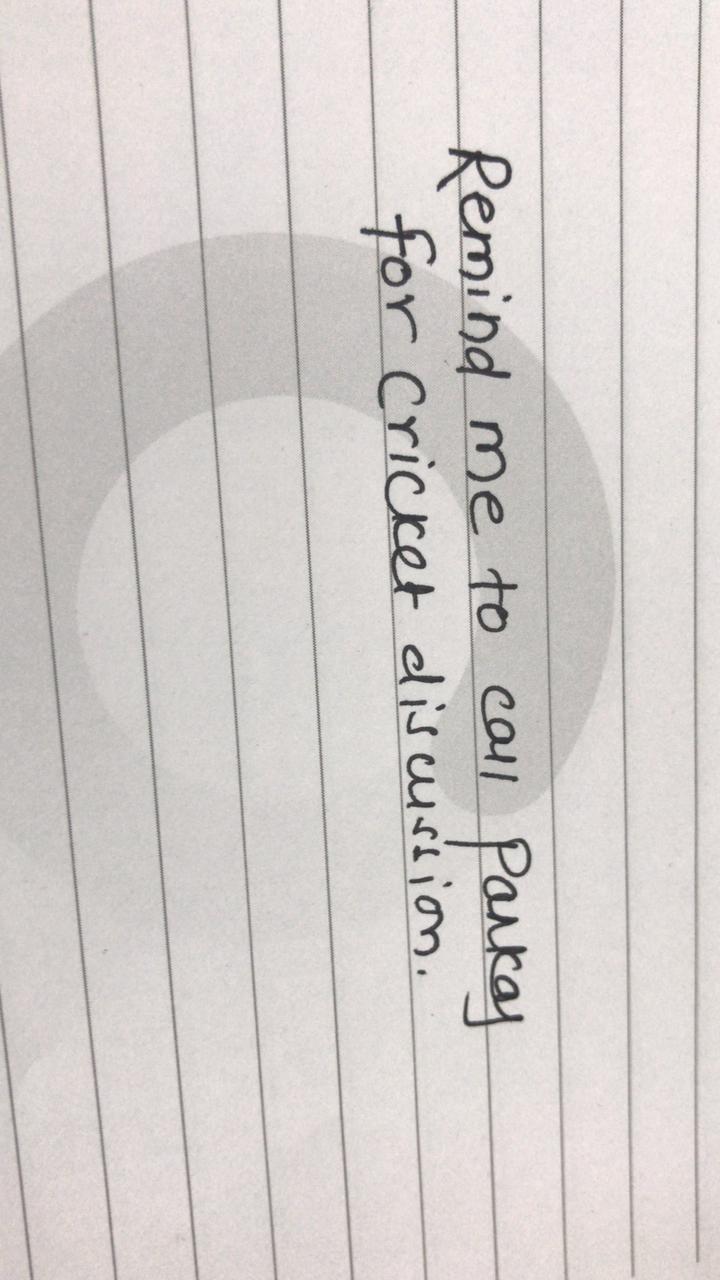 Remind me to call Pankaj
for cricket discussion.